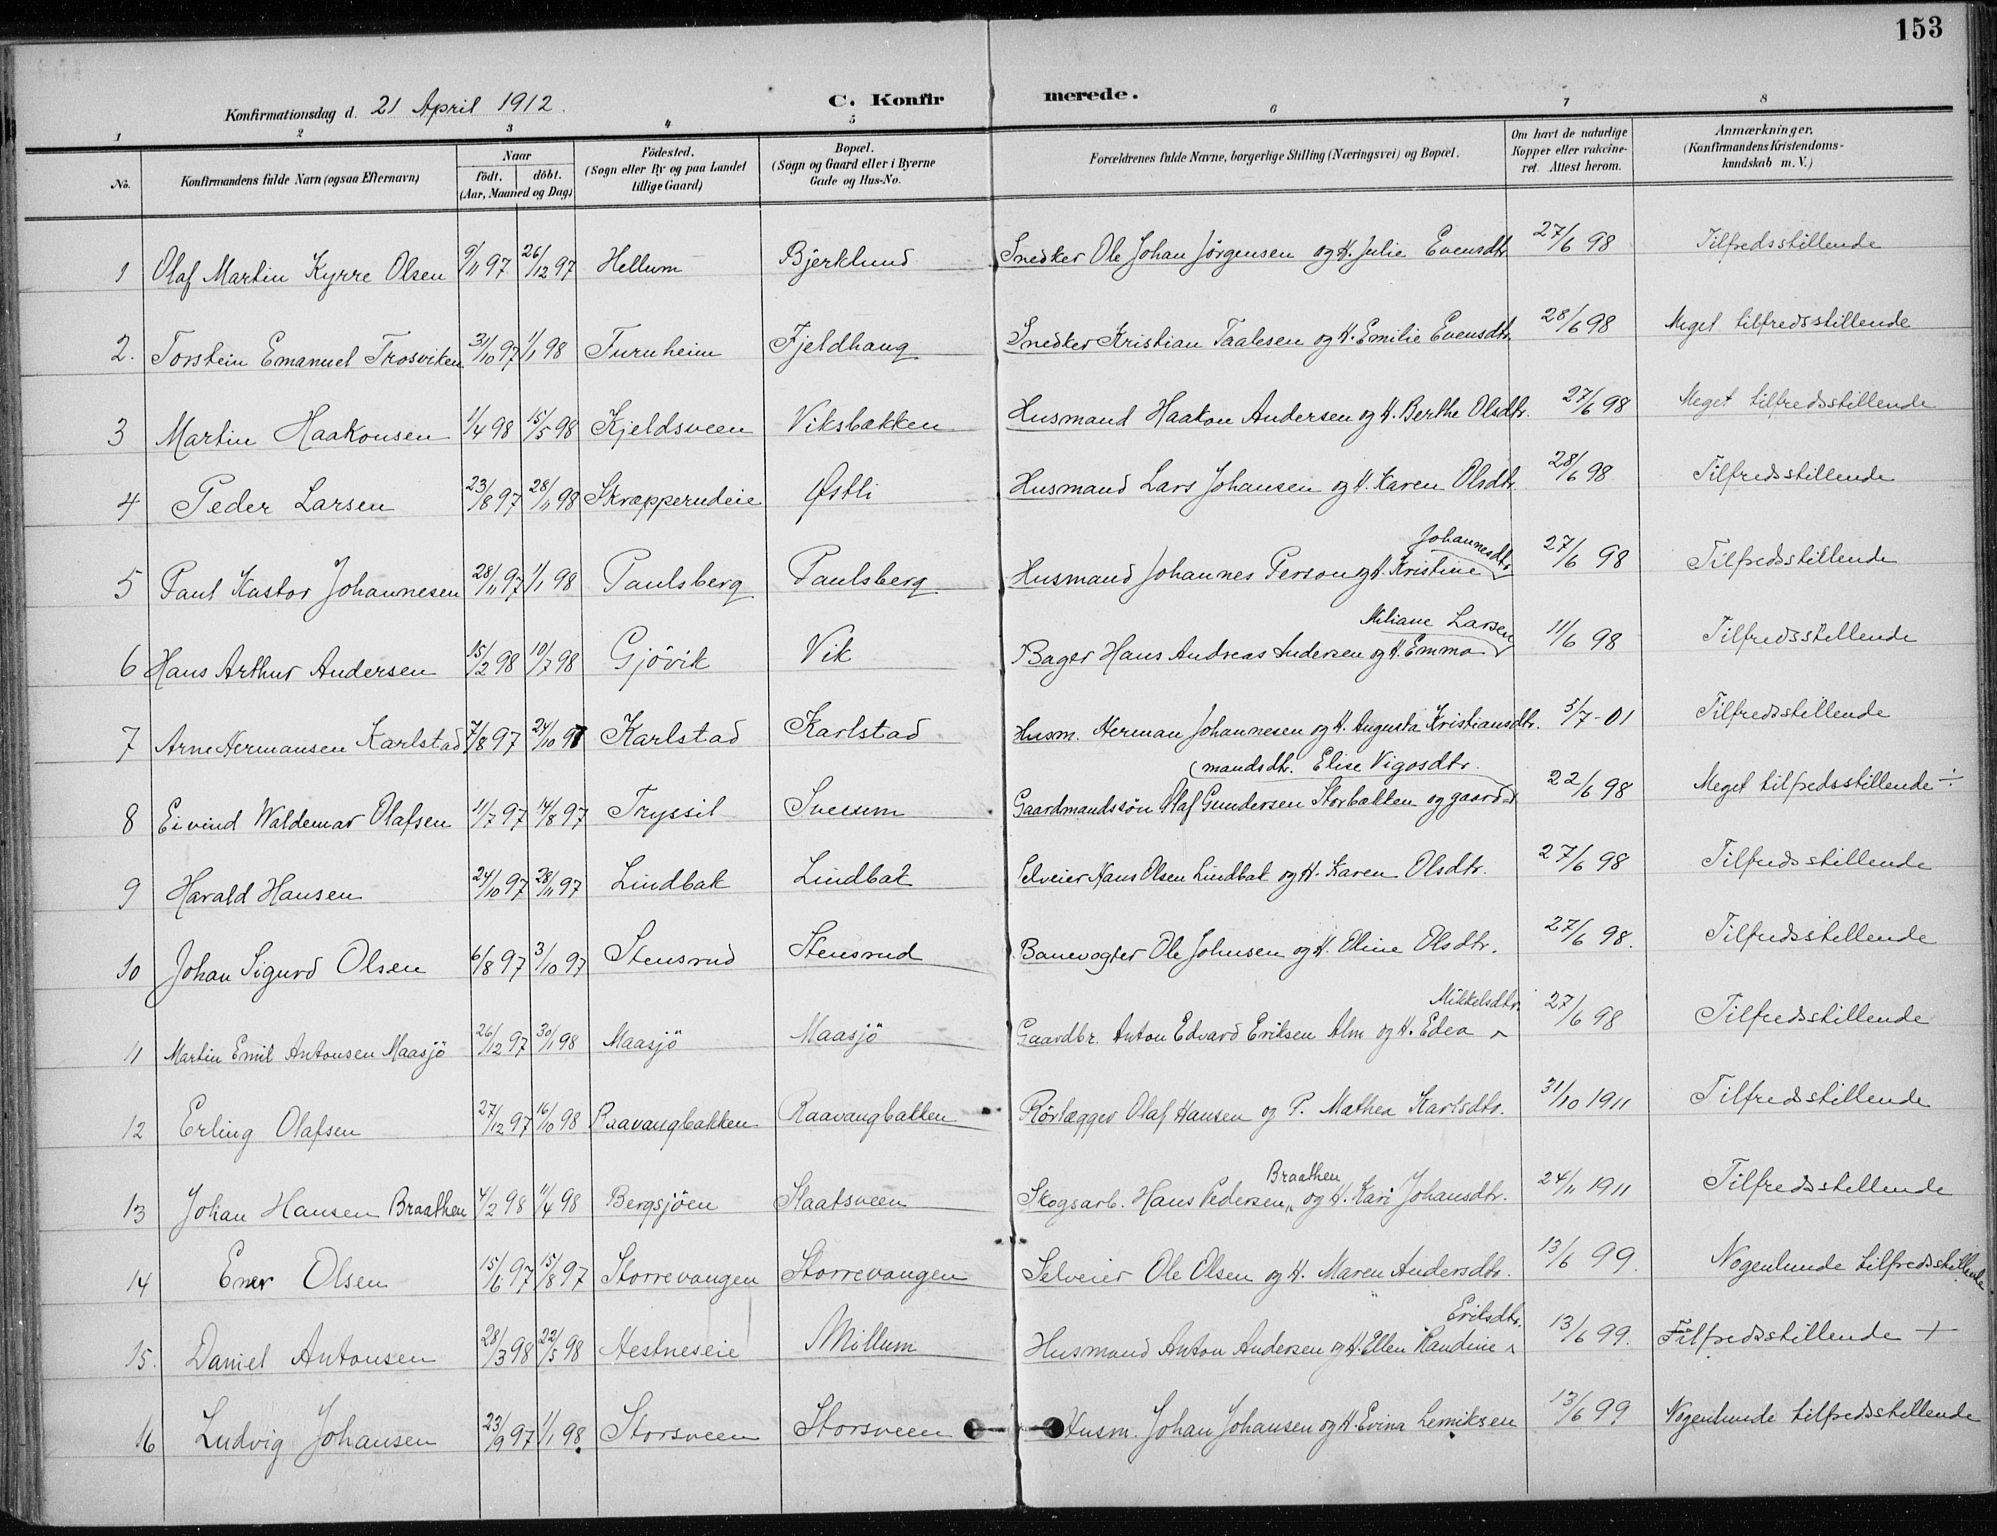 153
Konfirmationsdag d. 21 April 1912. C. Konfirmerede.
1 2 3 4 5 6 7 8
No. Konfirmandens fulde Navn (ogsaa Efternavn) Naar födt. döbt. (Aar, Maaned og Dag) Födested. (Sogn eller By og paa Landet tillige Gaard) Bopæl. (Sogn og Gaard eller i Byerne Gade og Hus-No. Forældrenes fulde Navne, borgerlige Stilling (Næringsvei) og Bopæl. Om havt de naturlige Kopper eller vaccineret. Attest herom. Anmærkninger, (Konfirmandens Kristendomskundskab m. V.)
1 Olaf Martin Kyrre Olsen 9/11 97 26/12 97 Hellum Bjerklund Snedker Ole Johan Jörgensen og H. Julie Evensdtr. 27/6 98 Tilfredsstillende
2. Torstein Emanuel Trosviken 31/10 97 1/1 98 Furuheim Fjeldhaug Snedker Kristian Taalesen og H. Emilie Evensdtr. 28/6 98 Meget tilfredsstillende
3 Martin Haakonsen 1/4 98 15/5 98 Kjeldsveen Viksbakken Husmand Haakon Andersen og H. Berthe Olsdtr. 27/6 98 Meget tilfredsstillende
4 Peder Larsen 23/8 97 28/11 98 Skrapperudeie Østli Husmand Lars Johansen og H. Karen Olsdtr. 28/6 98 Tilfredsstillende
5 Paul Kastor Johannesen 28/11 97 1/1 98 Paulsberg Paulsberg Husmand Johannes Person og H. Kristine Johannesdtr. 27/6 98 Tilfredsstillende
6 Hans Arthur Andersen 15/2 98 10/7 98 Gjövik Vik Bager Hans Andreas Andersen og H. Emma Miliane Larsen 11/6 98 Tilfredsstillende
7 Arne Hermansen Karlstad 7/8 97 24/10 97 Karlstad Karlstad Husm. Herman Johannesen og H. Augusta Kristiansdtr. 5/7-01 Tilfredsstillende
8 Eivind Waldemar Olafsen 11/7 97 14/8 97 Tryssil Sveum Gaardmandssön Olaf Gundersen Storbakken og gaardmandsdtr. Elise Vigosdtr. 22/6 98 Meget tilfredsstillende ÷
9 Harald Hansen 24/10 97 28/11 97 Lindbak Lindbak Selveier Hans Olsen Lindbak og H. Karen Olsdtr. 27/6 98 Tilfredsstillende
10 Johan Sigurd Olsen 6/8 97 3/10 97 Stensrud Stensrud Banevogter Ole Johnsen og H. Eline Olsdtr. 27/6 98. Tilfredsstillende
11 Martin Emil Antonsen Maasjö 26/12 97 30/1 98 Maasjö Maasjö Gaardbr. Anton Edvard Eriksen Alm og H. Edea Mikkelsdtr. 27/6 98 Tilfredsstillende
12 Erling Olafsen 27/12 97 16/10 98 Raavangbakken Raavangbakken Rörlægger Olaf Hansen og P. Mathea Karlsdtr. 31/10 1911 Tilfredsstillende
13 Johan Hansen Braathen 4/2 98 11/4 98 Bergsjöen Staatsveen Skogsarb. Hans Pedersen Braathen og H. Kari Johansdtr. 24/11 1911 Tilfredsstillende
14 Ener Olsen 15/6 97 15/8 97 Storrevangen Storrevangen Selveier Ole Olsen og H. Maren Andersdtr. 13/6 99. Nogenlunde tilfredsstillende
15. Daniel Antonsen 28/3 98 22/5 98 Hestneseie Millum Husmand Anton Andersen og H. Ellen Randine Eriksdtr. 13/6 99. Tilfredsstillende +
16 Ludvig Johansen 23/9 97 1/1 98. Storsveen Storsveen Husm. Johan Johansen og H. Evina Lemiksen 13/6 99 Nogenlunde tilfredsstillende